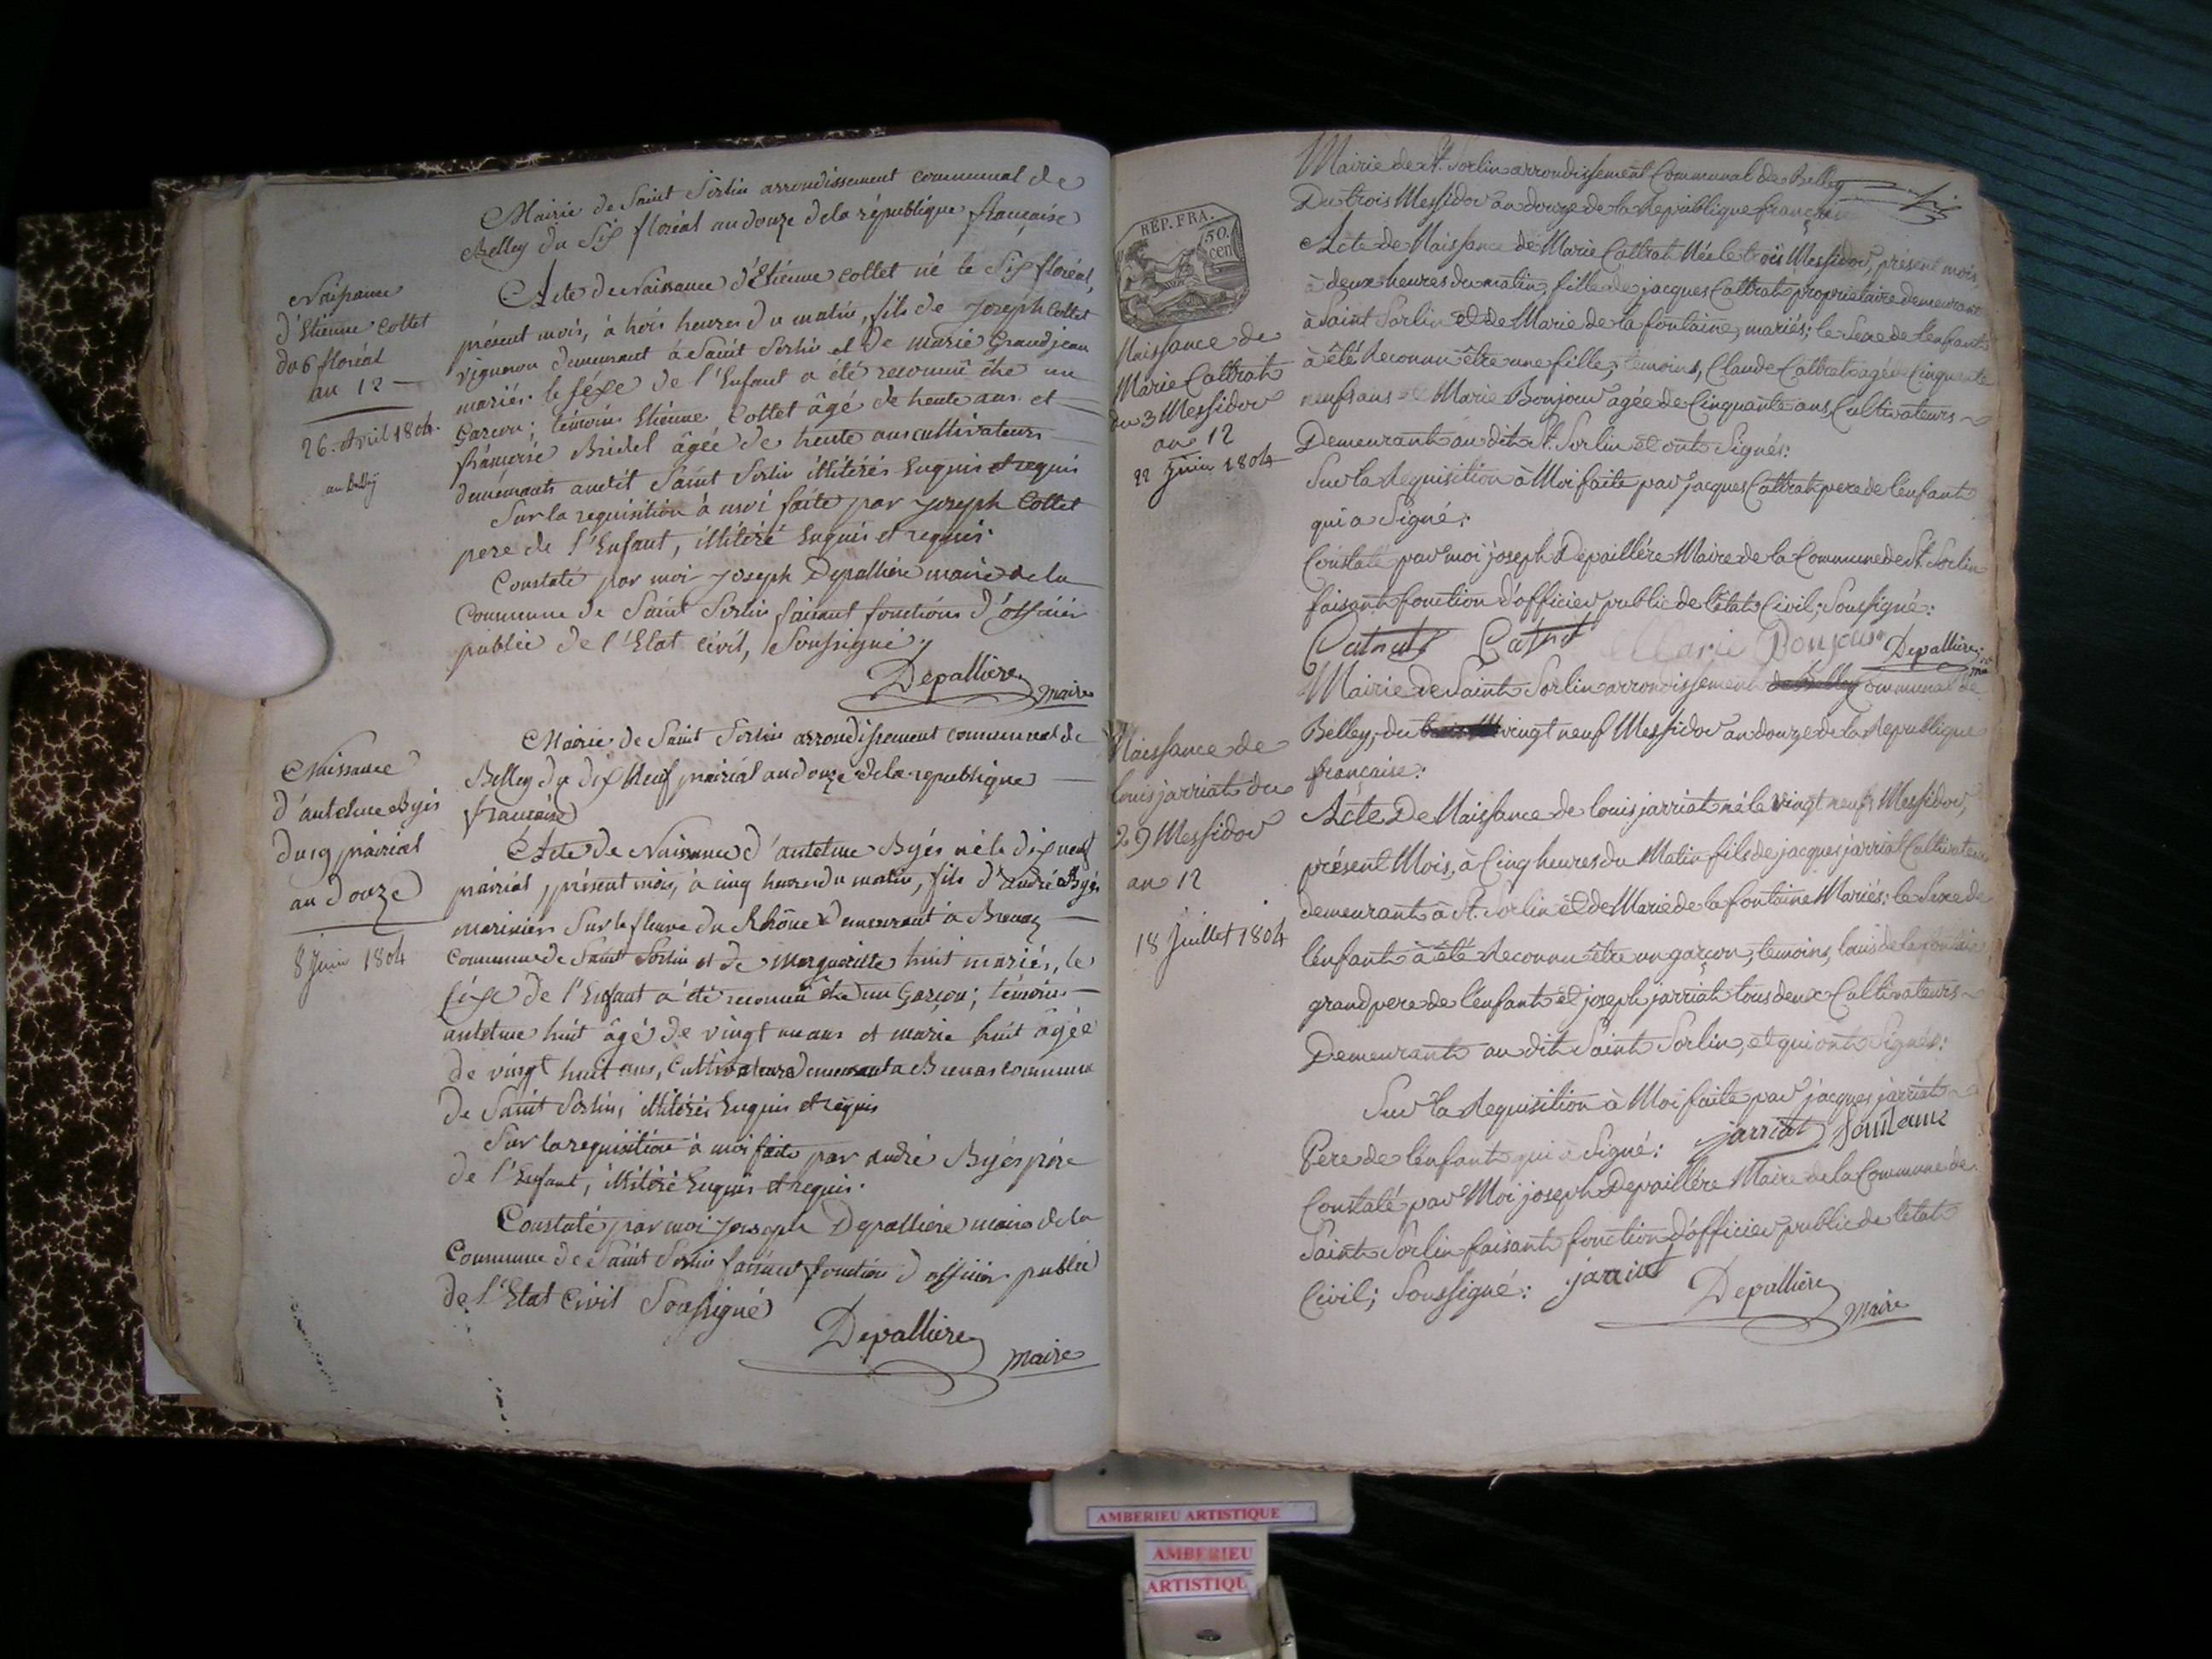 Mairie de Saint Sorlin arrondissement communal de
Belley du Six floréal an douze de la république française
Naissance
d'Etienne Collet
du 6 floréal
an 12
26. Avril 1804.
Acte de Naissance d'Etienne Collet né le Six floréal,
présent mois, à trois heures du matin, fils de Joseph Collet
vigneron demeurant à Saint Sorlin et de marie Grandjean
mariés. le séxe de l'Enfant a été reconnû être un
Garcon; témoins Etienne Collet âgé de trente ans et
françoise Bridel âgée de trente ans cultivateurs
demeurants audit Saint Sorlin illitérés Enquis et requis
Sur la requisition à moi faite par Joseph Collet
pere de l'Enfant, illitéré Enquis et requis.
Constaté par moi Joseph Depallière maire de la
Commune de Saint Sorlin faisant fonctions d'officier
public de l'Etat civil, Soussigné
Depalliere maire
Mairie de Saint Sorlin arrondissement communal de
Belley du dix Neuf prairial an douze de la republique
francaise
Naissance
d'antelme Byés
du 19 prairial
an douze
8 Juin 1804
Acte de Naissance d'antelme Byés né le dix neuf
prairial, présent mois, à cinq heures du matin, fils d'andré Byés
marinier Sur le fleuve du Rhône demeurant à
Commune de Saint Sorlin et de Margueritte huit mariés, le
séxe de l'Enfant a été reconnu être un Garçon; témoins
antelme huit âgé de vingt un ans et marie huit âgée
de vingt huit ans, Cultivateurs demeurant a commune
de Saint Sorlin, illitérés Enquis et requis
Sur la requisition à moi faite par andré Byés pére
de l'Enfant, illitéré Enquis et requis.
Constaté par moi Joseph Depalliere maire de la
Commune de Saint Sorlin faisant fonction d'officier public
de l'Etat Civil Soussigné
Depalliere maire
REP. FRA.
50.
cent
Mairie de St. Sorlin arrondissement Communal de Belley
Du trois Messidor an douze de la Republique française
Naissance de
Marie Cattrat
du 3 Messidor
an 12
22 Juin 1804
Acte de Naissance de Marie Cattrat Née le trois Messidor, présent mois,
à deux heures du matin, fille de jacques Cattrat propriétaire demeurant
à Saint Sorlin et de Marie de la fontaine, mariés; le Sexe de l'enfant
à été Reconnu être une fille; temoins, Claude Cattrat agé de Cinquante
neuf ans et Marie Bonjour agée de Cinquante ans Cultivateurs
Demeurant au dit St. Sorlin et ont Signés:
Sur la Requisition à Moi faite par Jacques Cattrat pere de l'enfant
qui a Signé:
Constaté par moi joseph Depaillére Maire de la Commune de St. Sorlin
faisant fonction d'officier public de l'état Civil; Soussigné:
Catrat Catrat Marie Bonjour Depalliere
Mairie de Saint Sorlin arrondissement de Belley Communal de
Belley; du vingt neuf Messidor an douze de la Republique
française:
Naissance de
louis jarriat du
29 Messidor
an 12
18 Juillet 1804
Acte De Naissance de louis jarriat né le vingt neuf Messidor,
présent Mois, à Cinq heures du Matin fils de jacques jarriat Cultivateur
demeurant à St. Sorlin et de Marie de la fontaine Mariés: le Sexe de
l'enfant à été Reconnu être un garçon, temoins, louis de la fontaine
grand pere de l'enfant et joseph jarriat tous deux Cultivateurs
Demeurant au dit Saint Sorlin, et qui ont Signés:
Sur la Requisition à Moi faite par jacques jarriat
Pere de l'enfant qui à Signé: jarriat fontaine
Constaté par Moi joseph Depaillére Maire de la Commune de
Saint Sorlin faisant fonction d'officier public de l'état
Civil; Soussigné: jarriat Depalliere maire
AMBERIEU ARTISTIQUE
AMBERIEU
ARTISTIQU